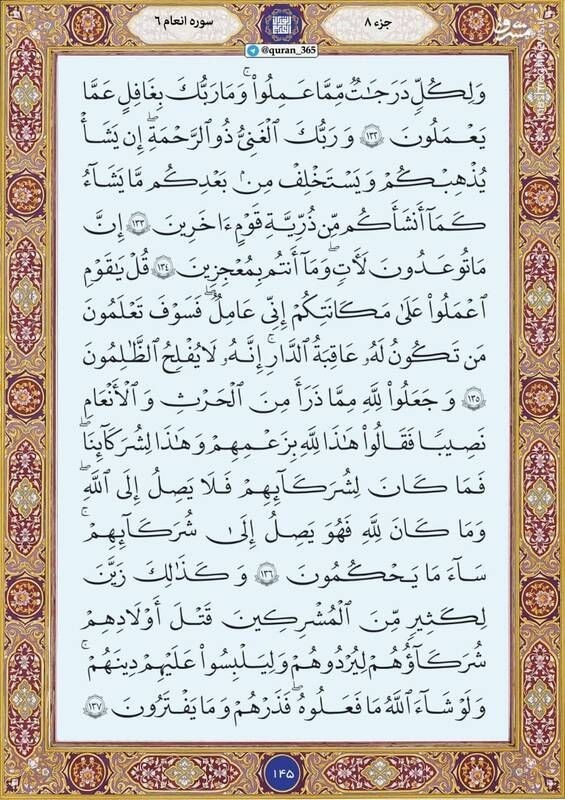 جزء ۸
سوره انعام ۶
@quran_365
وَلِكُلٍّ دَرَجَاتٌ مِّمَّا عَمِلُوا۟ ۚ وَمَا رَبُّكَ بِغَافِلٍ عَمَّا
يَعْمَلُونَ ۝١٣٢ وَرَبُّكَ الْغَنِىُّ ذُو الرَّحْمَةِ ۚ إِن يَشَأْ
يُذْهِبْكُمْ وَيَسْتَخْلِفْ مِنۢ بَعْدِكُم مَّا يَشَآءُ
كَمَآ أَنشَأَكُم مِّن ذُرِّيَّةِ قَوْمٍ ءَاخَرِينَ ۝١٣٣ إِنَّ
مَا تُوعَدُونَ لَأَتٍ ۖ وَمَآ أَنتُم بِمُعْجِزِينَ ۝١٣٤ قُلْ يَاقَوْمِ
اعْمَلُوا۟ عَلَىٰ مَكَانَتِكُمْ إِنِّى عَامِلٌ ۖ فَسَوْفَ تَعْلَمُونَ
مَن تَكُونُ لَهُۥ عَاقِبَةُ الدَّارِ ۗ إِنَّهُۥ لَا يُفْلِحُ الظَّالِمُونَ
۝١٣٥ وَجَعَلُوا۟ لِلَّهِ مِمَّا ذَرَأَ مِنَ الْحَرْثِ وَالْأَنْعَامِ
نَصِيبًا فَقَالُوا۟ هَاذَا لِلَّهِ بِزَعْمِهِمْ وَهَاذَا لِشُرَكَآئِنَا ۖ
فَمَا كَانَ لِشُرَكَآئِهِمْ فَلَا يَصِلُ إِلَى اللَّهِ ۖ
وَمَا كَانَ لِلَّهِ فَهُوَ يَصِلُ إِلَىٰ شُرَكَآئِهِمْ ۗ
سَآءَ مَا يَحْكُمُونَ ۝١٣٦ وَكَذَالِكَ زَيَّنَ
لِكَثِيرٍ مِّنَ الْمُشْرِكِينَ قَتْلَ أَوْلَادِهِمْ
شُرَكَآؤُهُمْ لِيُرْدُوهُمْ وَلِيَلْبِسُوا۟ عَلَيْهِمْ دِينَهُمْ ۖ
وَلَوْ شَآءَ اللَّهُ مَا فَعَلُوهُ ۖ فَذَرْهُمْ وَمَا يَفْتَرُونَ ۝١٣٧
۱۴۵